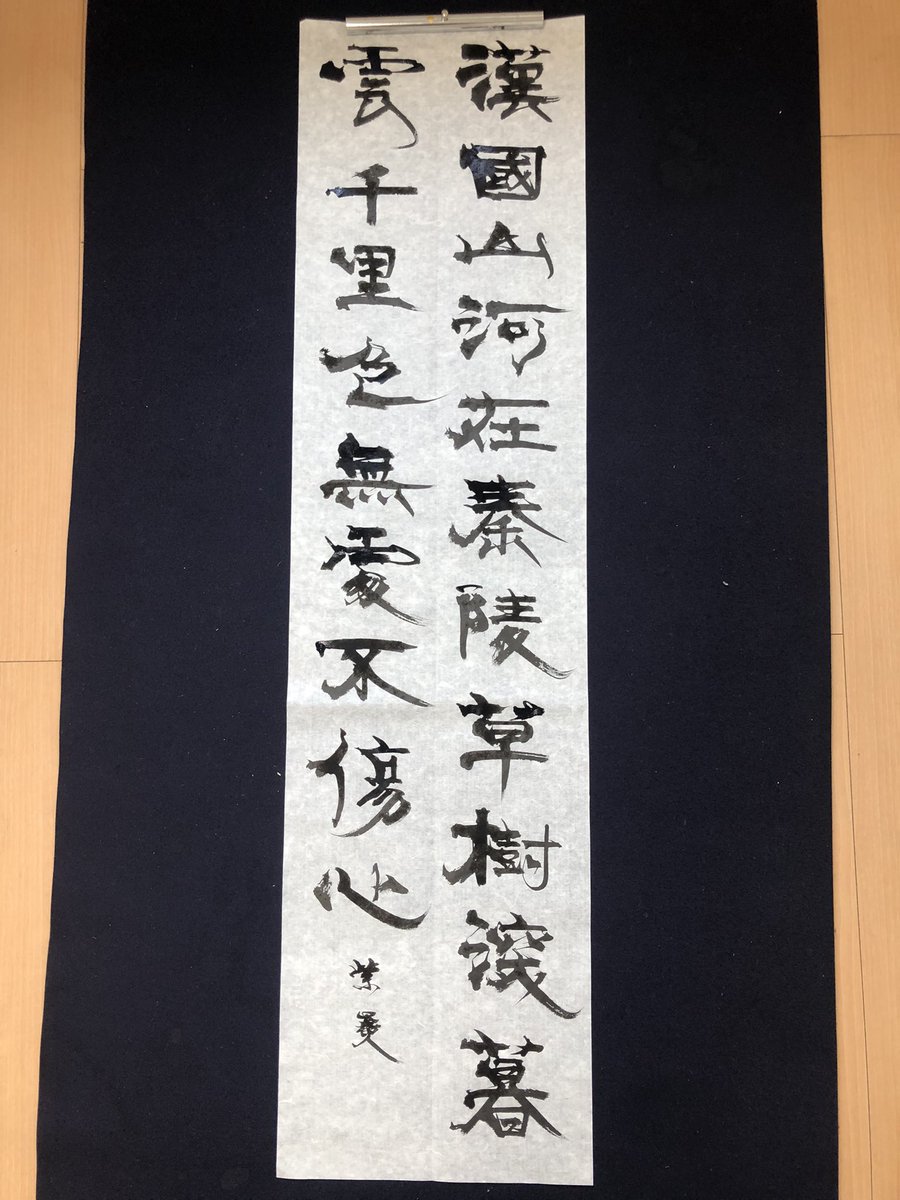 漢國山河在秦陵草樹深暮
雲千里色無處不傷心
紫曼